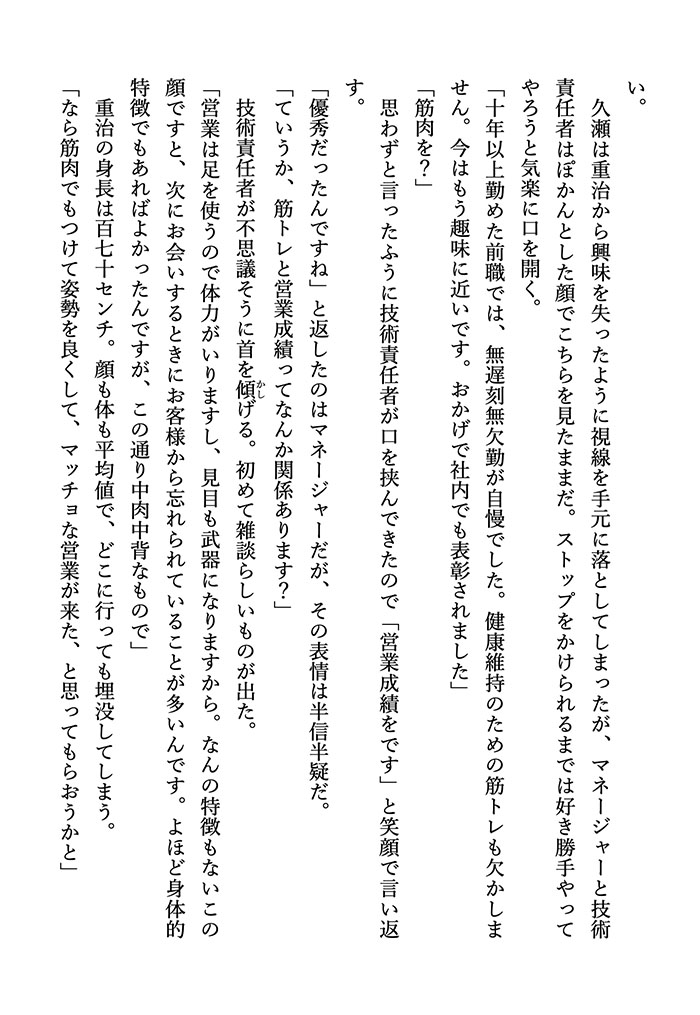 い。
　久瀬は重治から興味を失ったように視線を手元に落としてしまったが、マネージャーと技術
責任者はぽかんとした顔でこちらを見たままだ。ストップをかけられるまでは好き勝手やって
やろうと気楽に口を開く。
「十年以上勤めた前職では、無遅刻無欠勤が自慢でした。健康維持のための筋トレも欠かしま
せん。今はもう趣味に近いです。おかげで社内でも表彰されました」
「筋肉を？」
　思わずと言ったふうに技術責任者が口を挟んできたので「営業成績をです」と笑顔で言い返
す。
「優秀だったんですね」と返したのはマネージャーだが、その表情は半信半疑だ。
「ていうか、筋トレと営業成績ってなんか関係あります？」
　技術責任者が不思議そうに首を傾かしげる。初めて雑談らしいものが出た。
「営業は足を使うので体力がいりますし、見目も武器になりますから。なんの特徴もないこの
顔ですと、次にお会いするときにお客様から忘れられていることが多いんです。よほど身体的
特徴でもあればよかったんですが、この通り中肉中背なもので」
　重治の身長は百七十センチ。顔も体も平均値で、どこに行っても埋没してしまう。
「なら筋肉でもつけて姿勢を良くして、マッチョな営業が来た、と思ってもらおうかと」